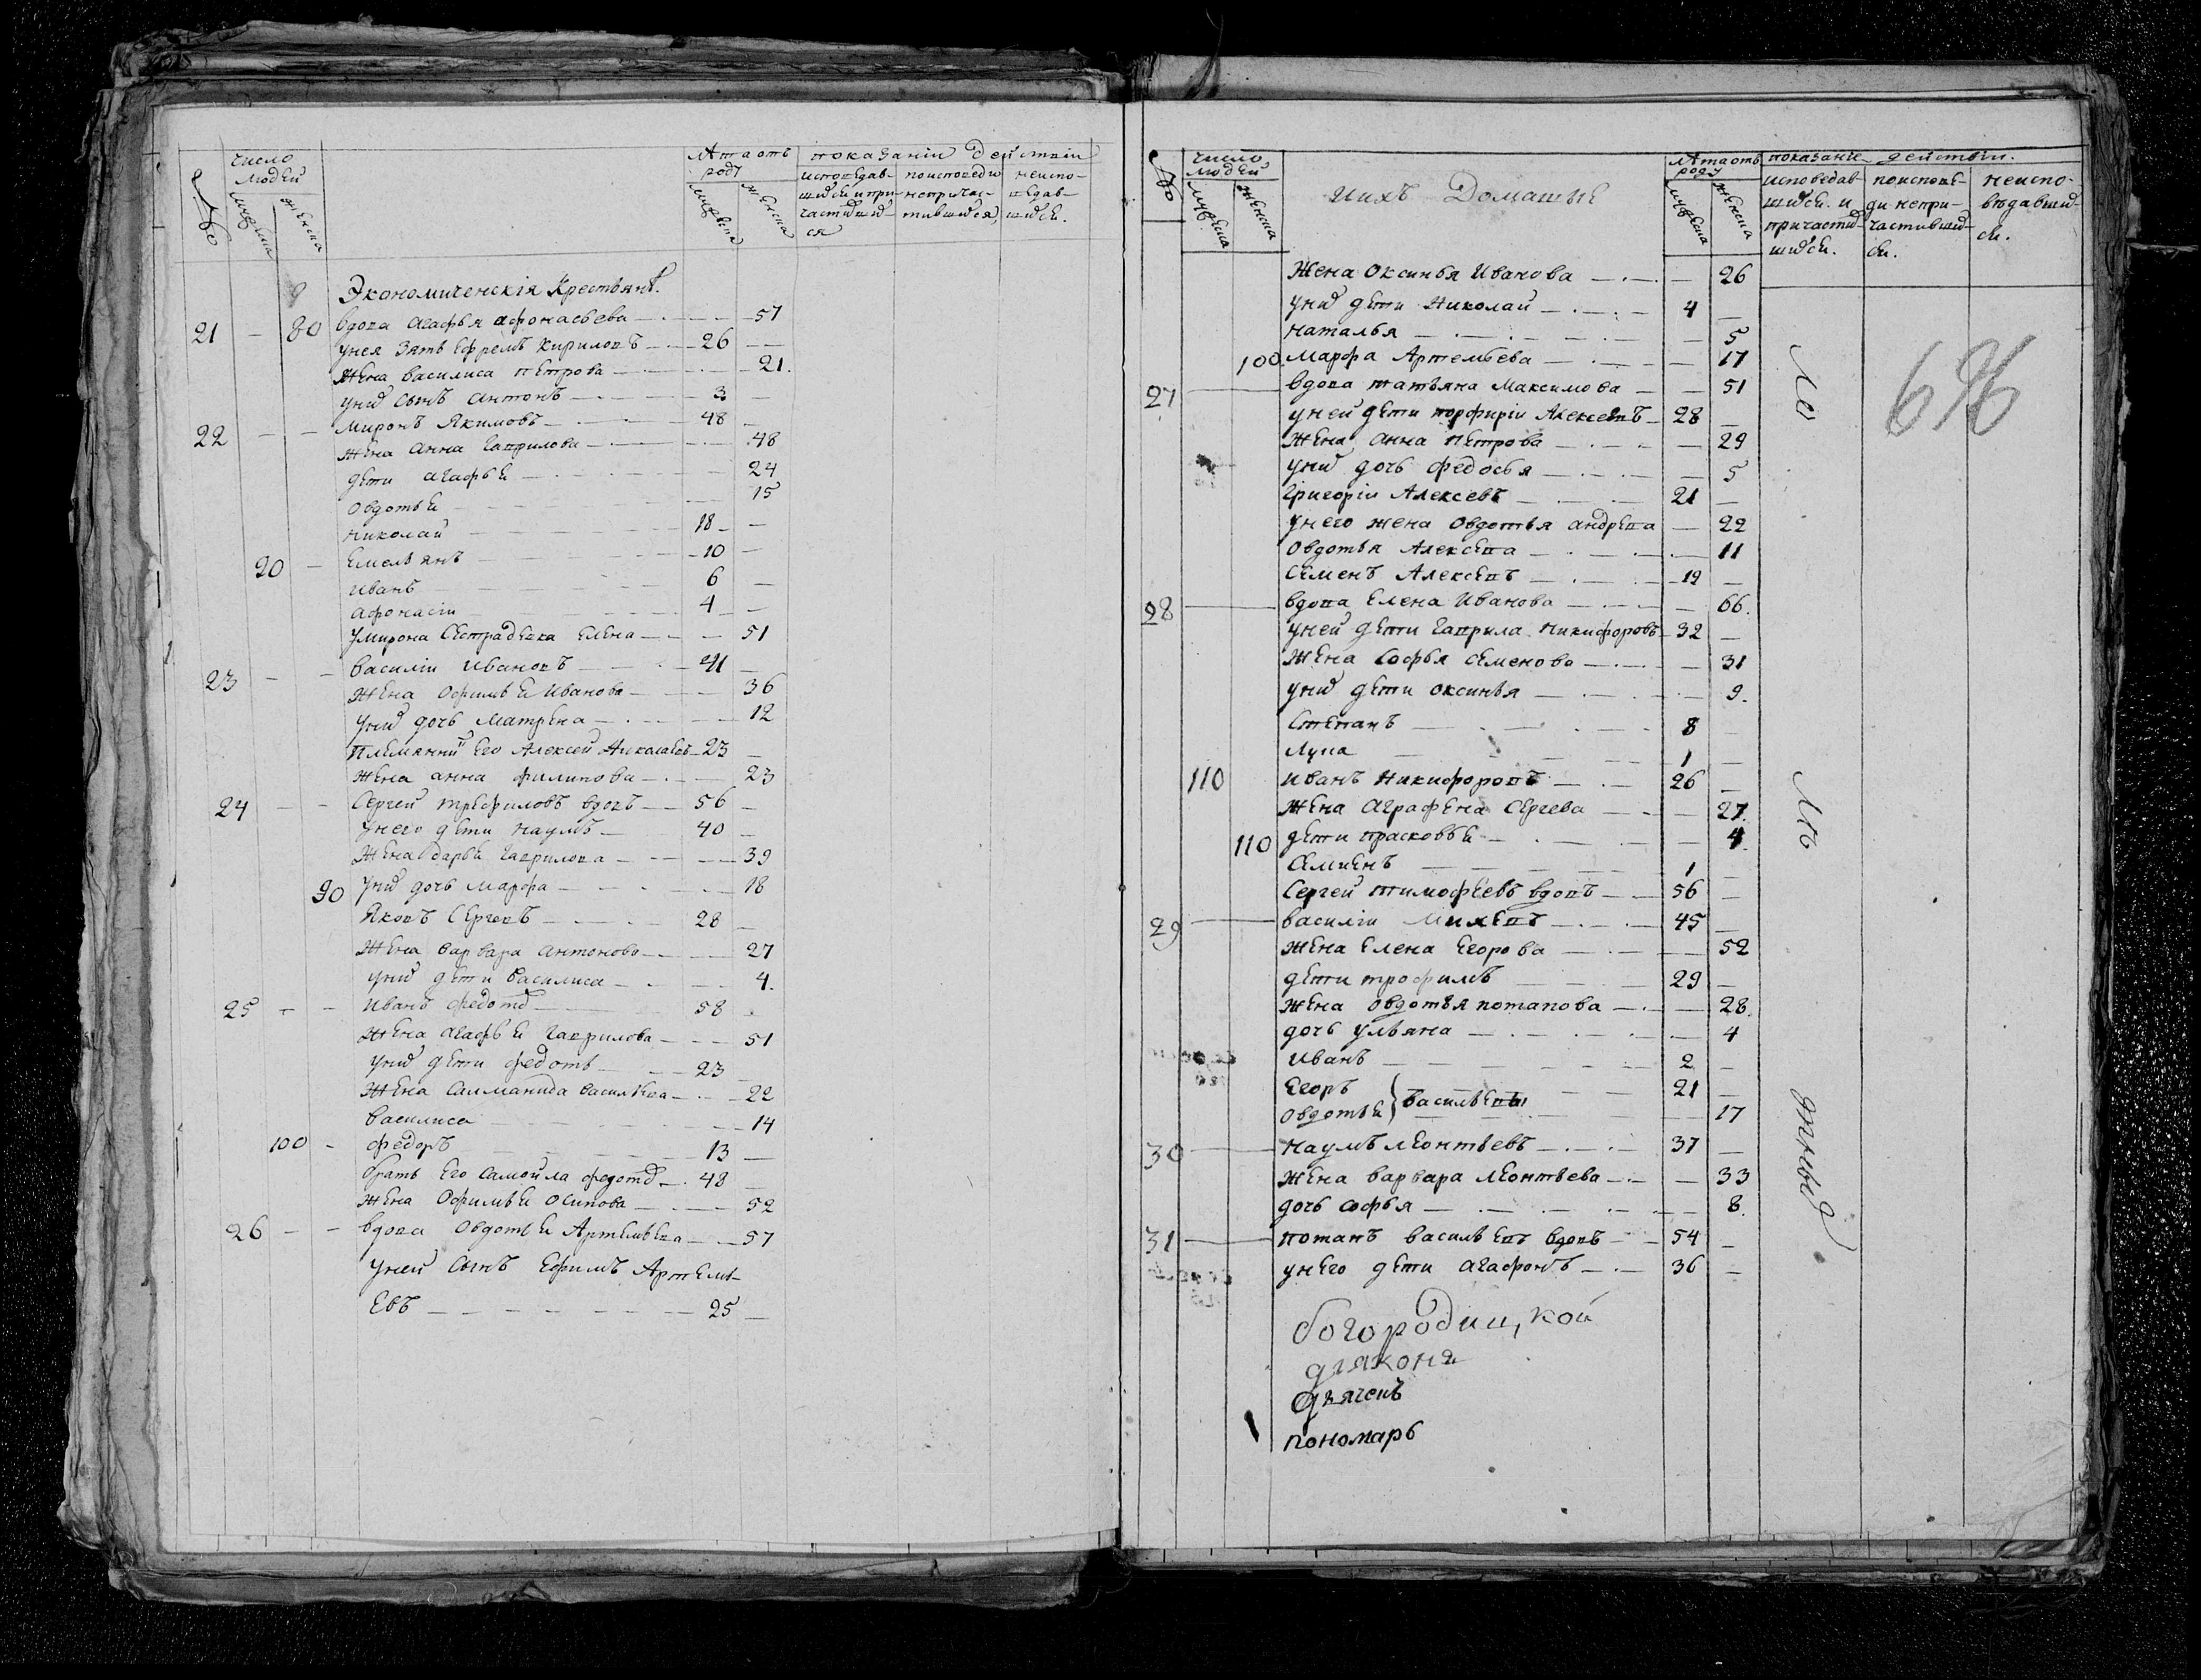 №
число людей
мужеска
женска
лѣта отъ роду
мужеска
женска
показаніи действіи
исповедавшихся и причастившихся
по исповеди непричастившихся
неисповедавшихся
9 Экономическія Крестьянѣ
21 — 80 вдова агафья афонасьева — 57
у нея зять ефремъ кириловъ — 26 —
жена василиса петрова — 21.
у них сынъ антонъ — 3 —
22 — — миронъ якимовъ — 48 —
жена анна гаврилова — 48
дети агафья — 24
овдотья — 15
николай — 18 —
20 — емельянъ — 10 —
иванъ — 6 —
афонасіи — 4 —
у мирона сестра девка елена — 51
23 — — василіи ивановъ — 41 —
жена офимья иванова — 36
у них дочь матрена — 12
племянник его алексей николаевъ — 23 —
жена анна филипова — 23
24 — — сергей трефиловъ вдовъ — 56 —
у него дети наумъ — 40 —
жена дарья гаврилова — 39
90 у них дочь марфа — 18
яковъ сергевъ — 28 —
жена варвара антонова — 27
у них дети василиса — 4.
25 — — иванъ федотов — 58
жена агафья гаврилова — 51
у них дети федотъ — 23
жена васильева — 22
василиса — 14
100 — федоръ — 13 —
братъ его самойла федотов — 48 —
жена офимья осипова — 52
26 — — вдова овдотья артемьева — 57
у ней сынъ ефимъ артемь-
евъ — 25 —
№
число людей
мужеска
женска
и ихъ домашніе
лѣта отъ роду
мужеска
женска
показаніе действіи.
исповедавшихся и причастившихся.
по исповеди непричастившихся.
неисповѣдавшихся.
жена оксинья иванова — 26
у них дети николай — 4 —
наталья — 5
100. марфа артемьева — 17
27 — вдова татьяна максимова — 51
у ней дети порфиріи алексеевъ — 28 —
жена анна петрова — 29
у них дочь федосья — 5
григоріи алексевъ — 21 —
у него жена овдотья андрева — 22
овдотья алексева — 11
семенъ алексевъ — 19 —
28 — вдова елена иванова — 66.
у ней дети гаврила никифоровъ — 32 —
жена софья семенова — 31
у них дети оксинья — 9.
степанъ — 8 —
лупа — 1 —
110 иванъ никифоровъ — 26 —
жена аграфена сергева — 27.
110 дети прасковья — 4.
семиенъ — 1 —
сергей тимофѣевъ вдовъ — 56 —
29 — василіи михевъ — 45 —
жена елена егорова — 52
дети трофимъ — 29 —
жена овдотья потапова — 28.
дочь ульяна — 4
иванъ — 2 —
егоръ — 21 —
овдотья } васильевы — 17
30 — наумъ леонтьевъ — 37 —
жена варвара леонтьева — 33
дочь софья — 8.
31 — потапъ васильевъ вдовъ — 54 —
у него дети агафонъ — 36 —
696
богородицкой
дияконя
дьячекъ
пономарь